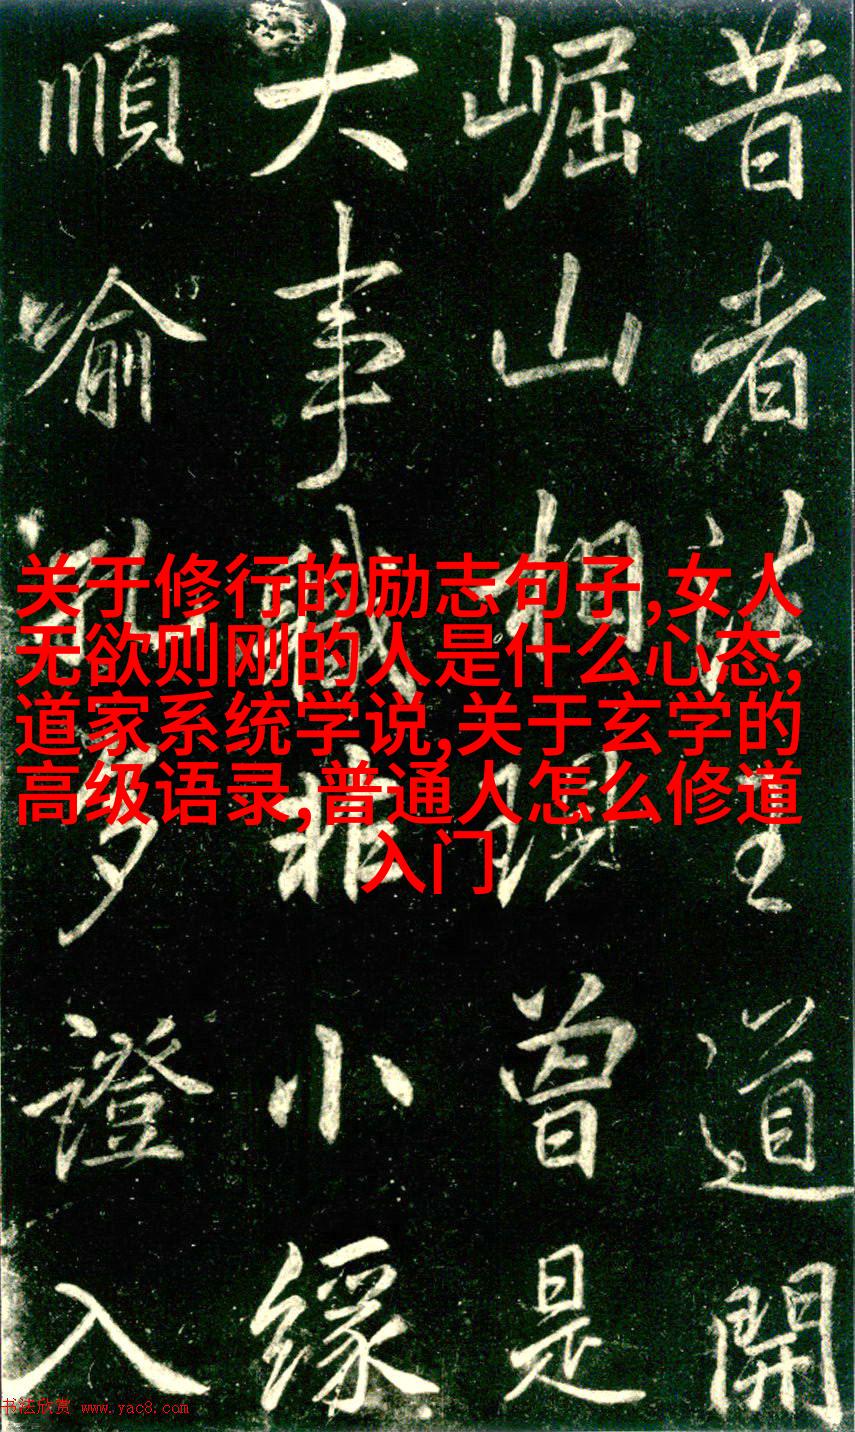 昔者法王道開
崛山相現曾是
大事職非小緣
順喻多證入
关于修行的励志句子,女人
无欲则刚的人是什么心态,
道家系统学说,关于玄学的
高级语录,普通人怎么修道
入门
书法欣赏 www.yac8.com